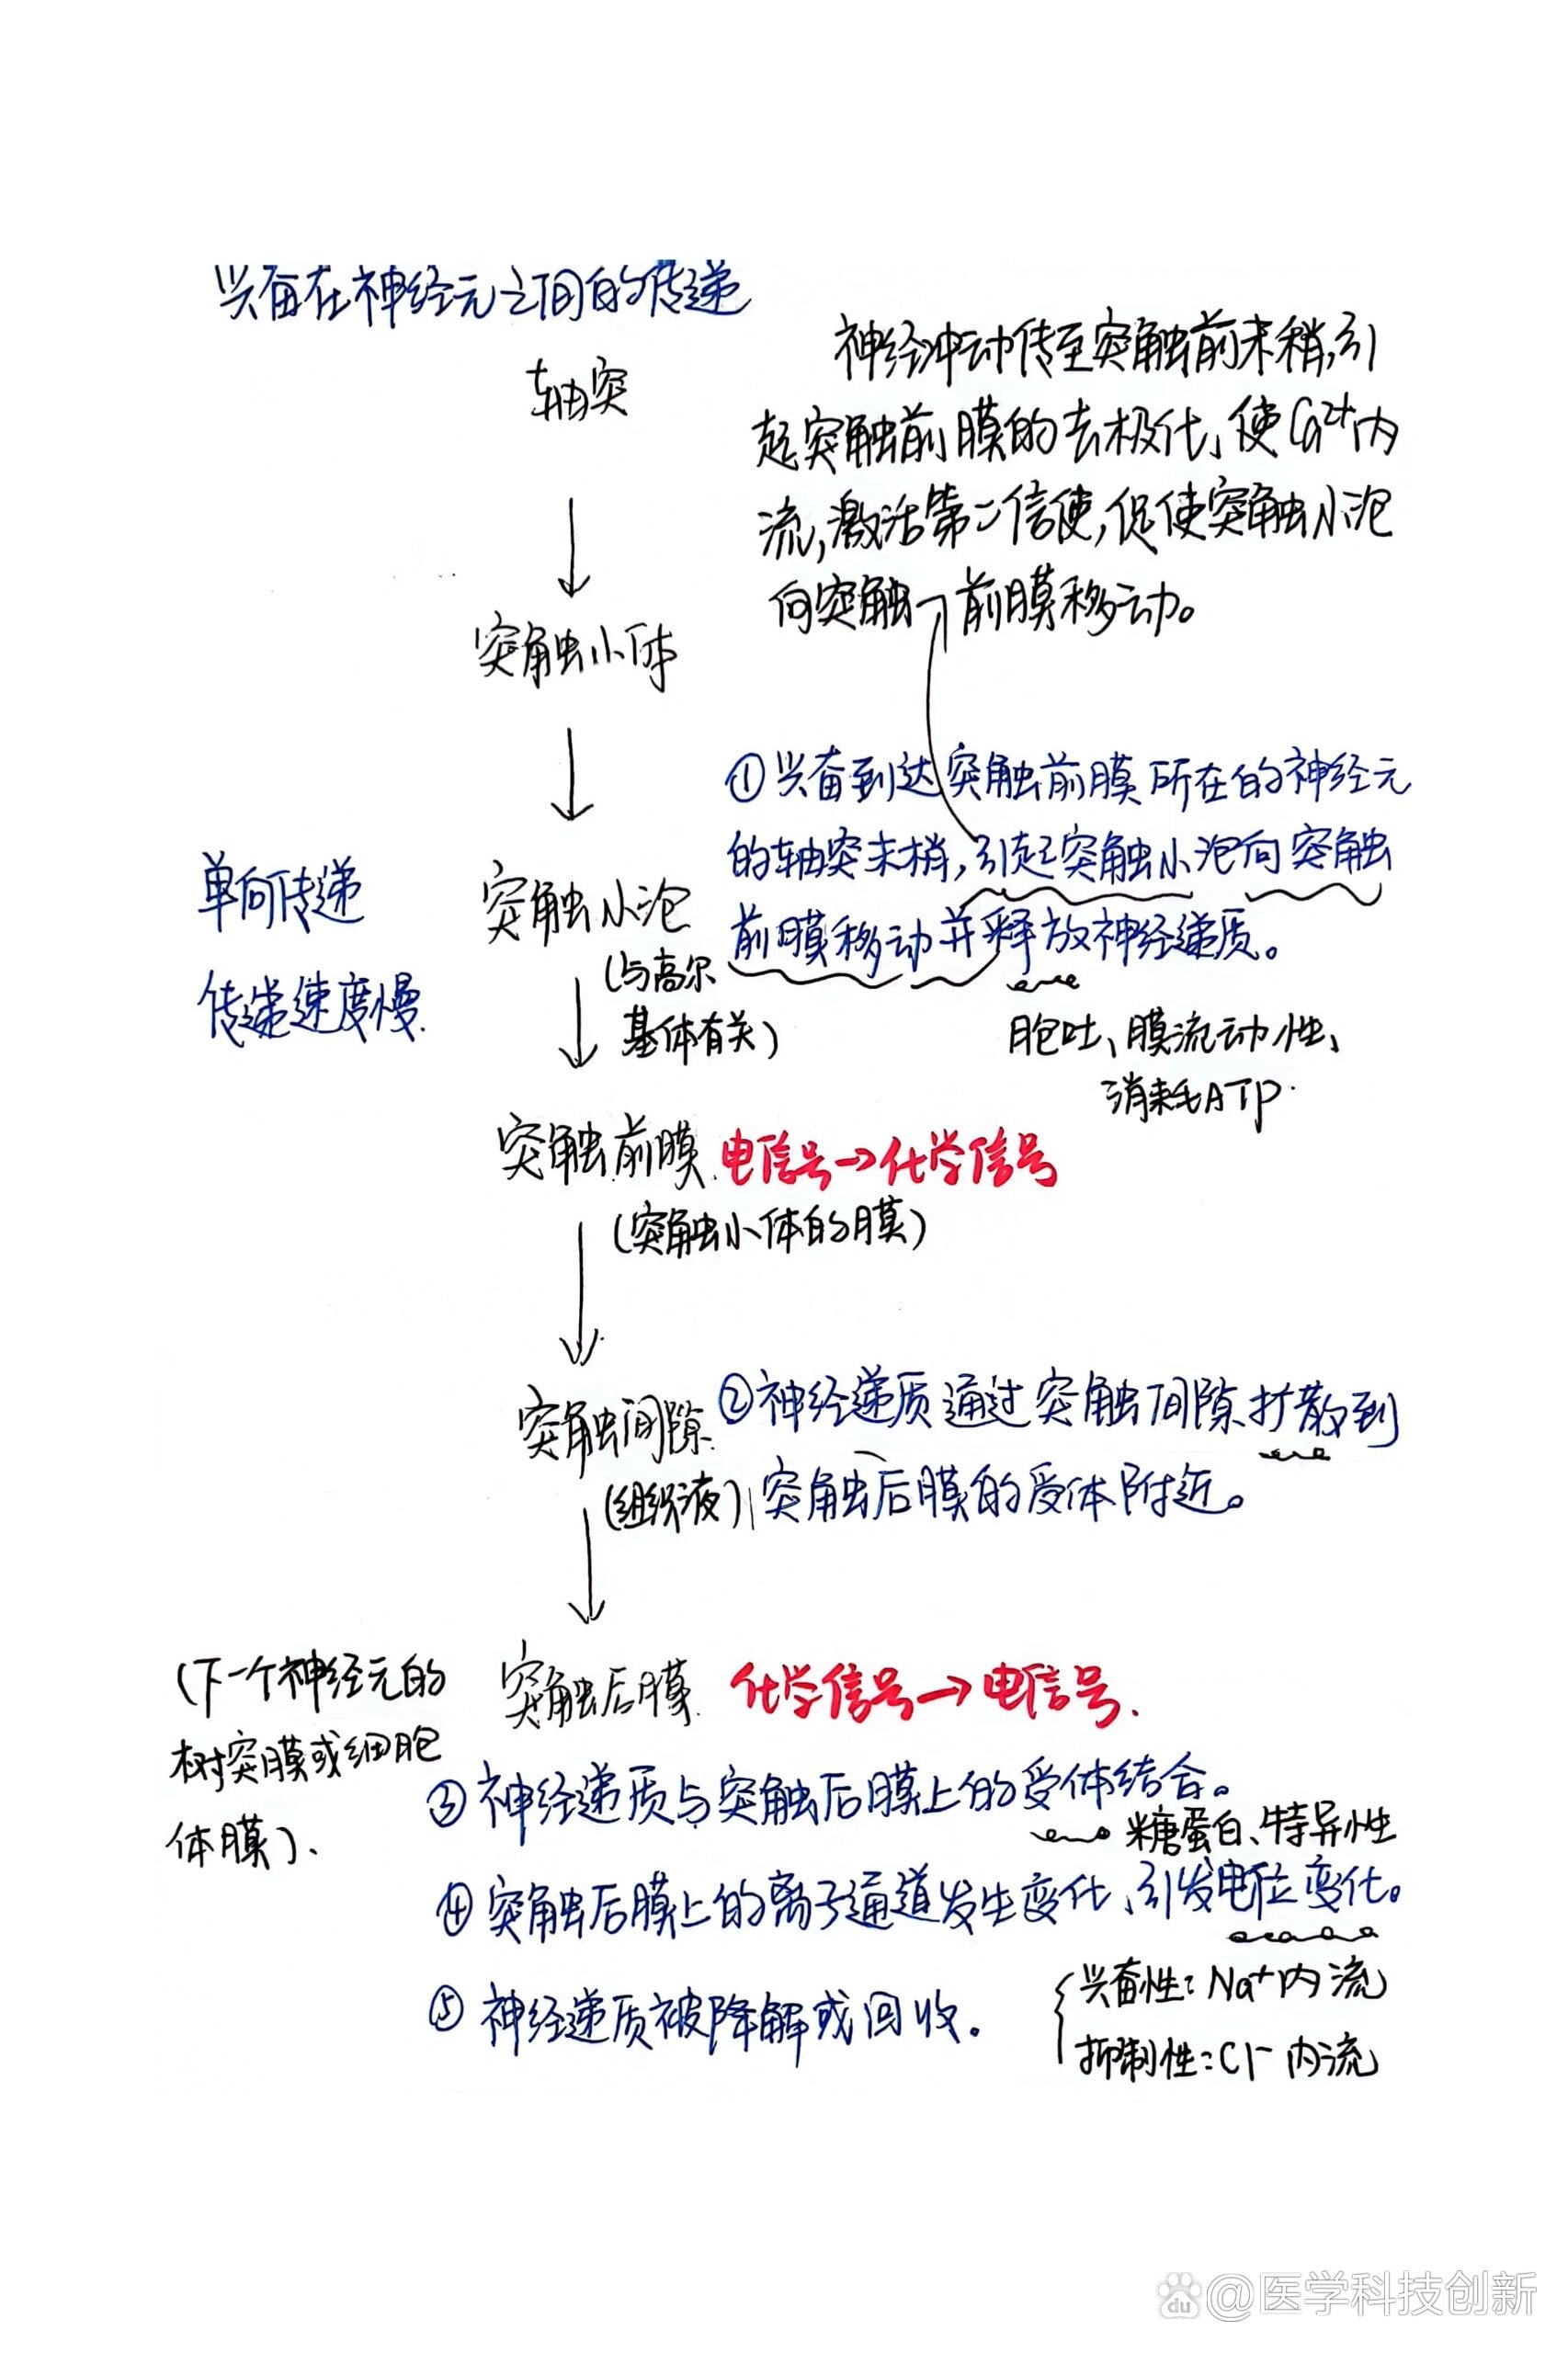 兴奋在神经元之间的传递
轴突
神经冲动传至突触前末稍,引
起突触前膜的去极化,使Ca²⁺内
流,激活第二信使,促使突触小泡
向突触前膜移动。
突触小体
①兴奋到达突触前膜所在的神经元
的轴突末梢,引起突触小泡向突触
前膜移动并释放神经递质。
胞吐、膜流动性、
消耗ATP.
单向传递
传递速度慢.
突触小泡
(与高尔
基体有关)
突触前膜. 电信号→化学信号
(突触小体的膜)
突触间隙.
(组织液)
②神经递质通过突触间隙扩散到
突触后膜的受体附近。
(下一个神经元的
树突膜或细胞
体膜).
突触后膜. 化学信号→电信号.
③神经递质与突触后膜上的受体结合。
糖蛋白、特异性
④突触后膜上的离子通道发生变化,引发电位变化。
兴奋性:Na⁺内流
抑制性:Cl⁻内流
⑤神经递质被降解或回收.
du @医学科技创新